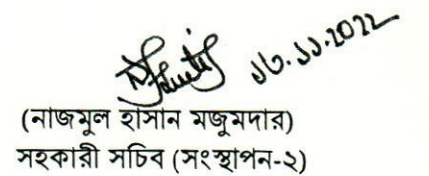 ১৬.১১.2022
(নাজমুল হাসান মজুমদার)
সহকারী সচিব (সংস্থাপন-২)